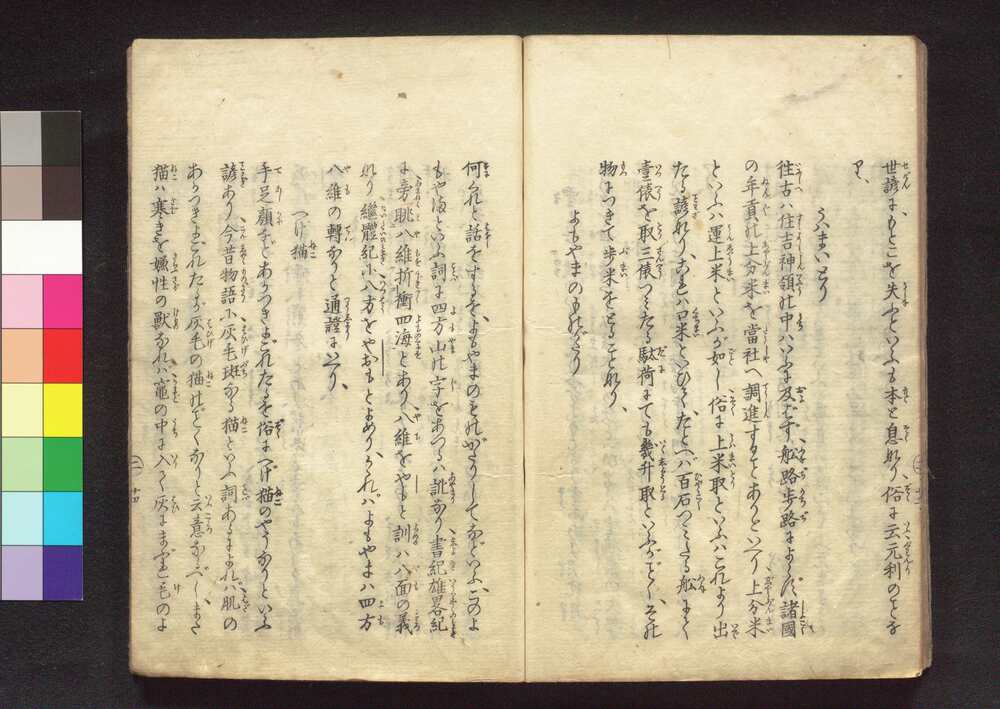 世諺にもとこを失ふといふも本と息なり俗に云元利のことな
り、
うはまいとり
往古ハ住吉神領の中ハいふに及ばず舩路歩路によらず諸國
の年貢の上分米を當社へ調進することありといへり上分米
といふハ運上米といふが如し俗に上米取といふハこれより出
たる諺なりこれハ口米といひてたとへハ百石つミたる舩にて
壹俵を取三俵つミたる駄荷にても幾升取といふがごとくその
物につきて歩米をとることなり、
よもやまのものがたり
何くれと話をするをよもやまのものがたりしてなどいふこのよ
もやまといふ詞に四方山の字をあつるハ訛なり書紀雄畧紀
に旁眺八維折衝四海とあり八維をやもと訓ハ八面の義
なり繼體紀に八方をやおもとよめりかくれバよもやまハ四方
八維の轉なりと通證にいへり、
へつけ猫
手足顔などあかつきよごれたるを俗にへつけ猫のやうなりといふ
諺あり今昔物語に灰毛斑なる猫といふ詞あるによれバ肌の
あかつきよごれたるが灰毛の猫のごとくなりと云意なるべしまた
猫ハ寒きを嫌性の獣なれバ竈の中に入て灰にまぶれ毛のよ
二 十四